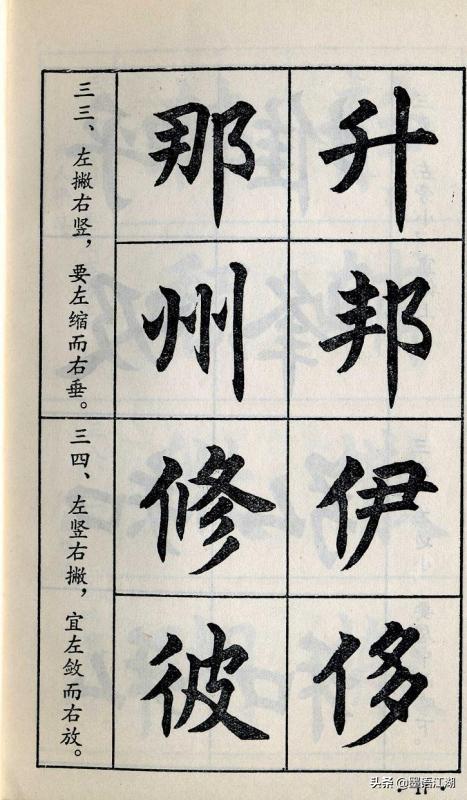 升
邦
伊
侈
那
州
修
彼
三三、左撇右竖，要左缩而右垂。
三四、左竖右撇，宜左敛而右放。
·17·
头条 @墨语江湖